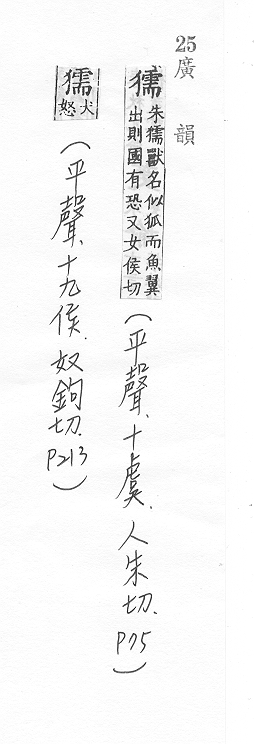 25廣韻
獳朱獳獸名似狐而魚翼出則國有恐又女侯切(平聲、十虞、人朱切、P75)
獳犬怒(平聲、十九侯、奴鉤切、P213)